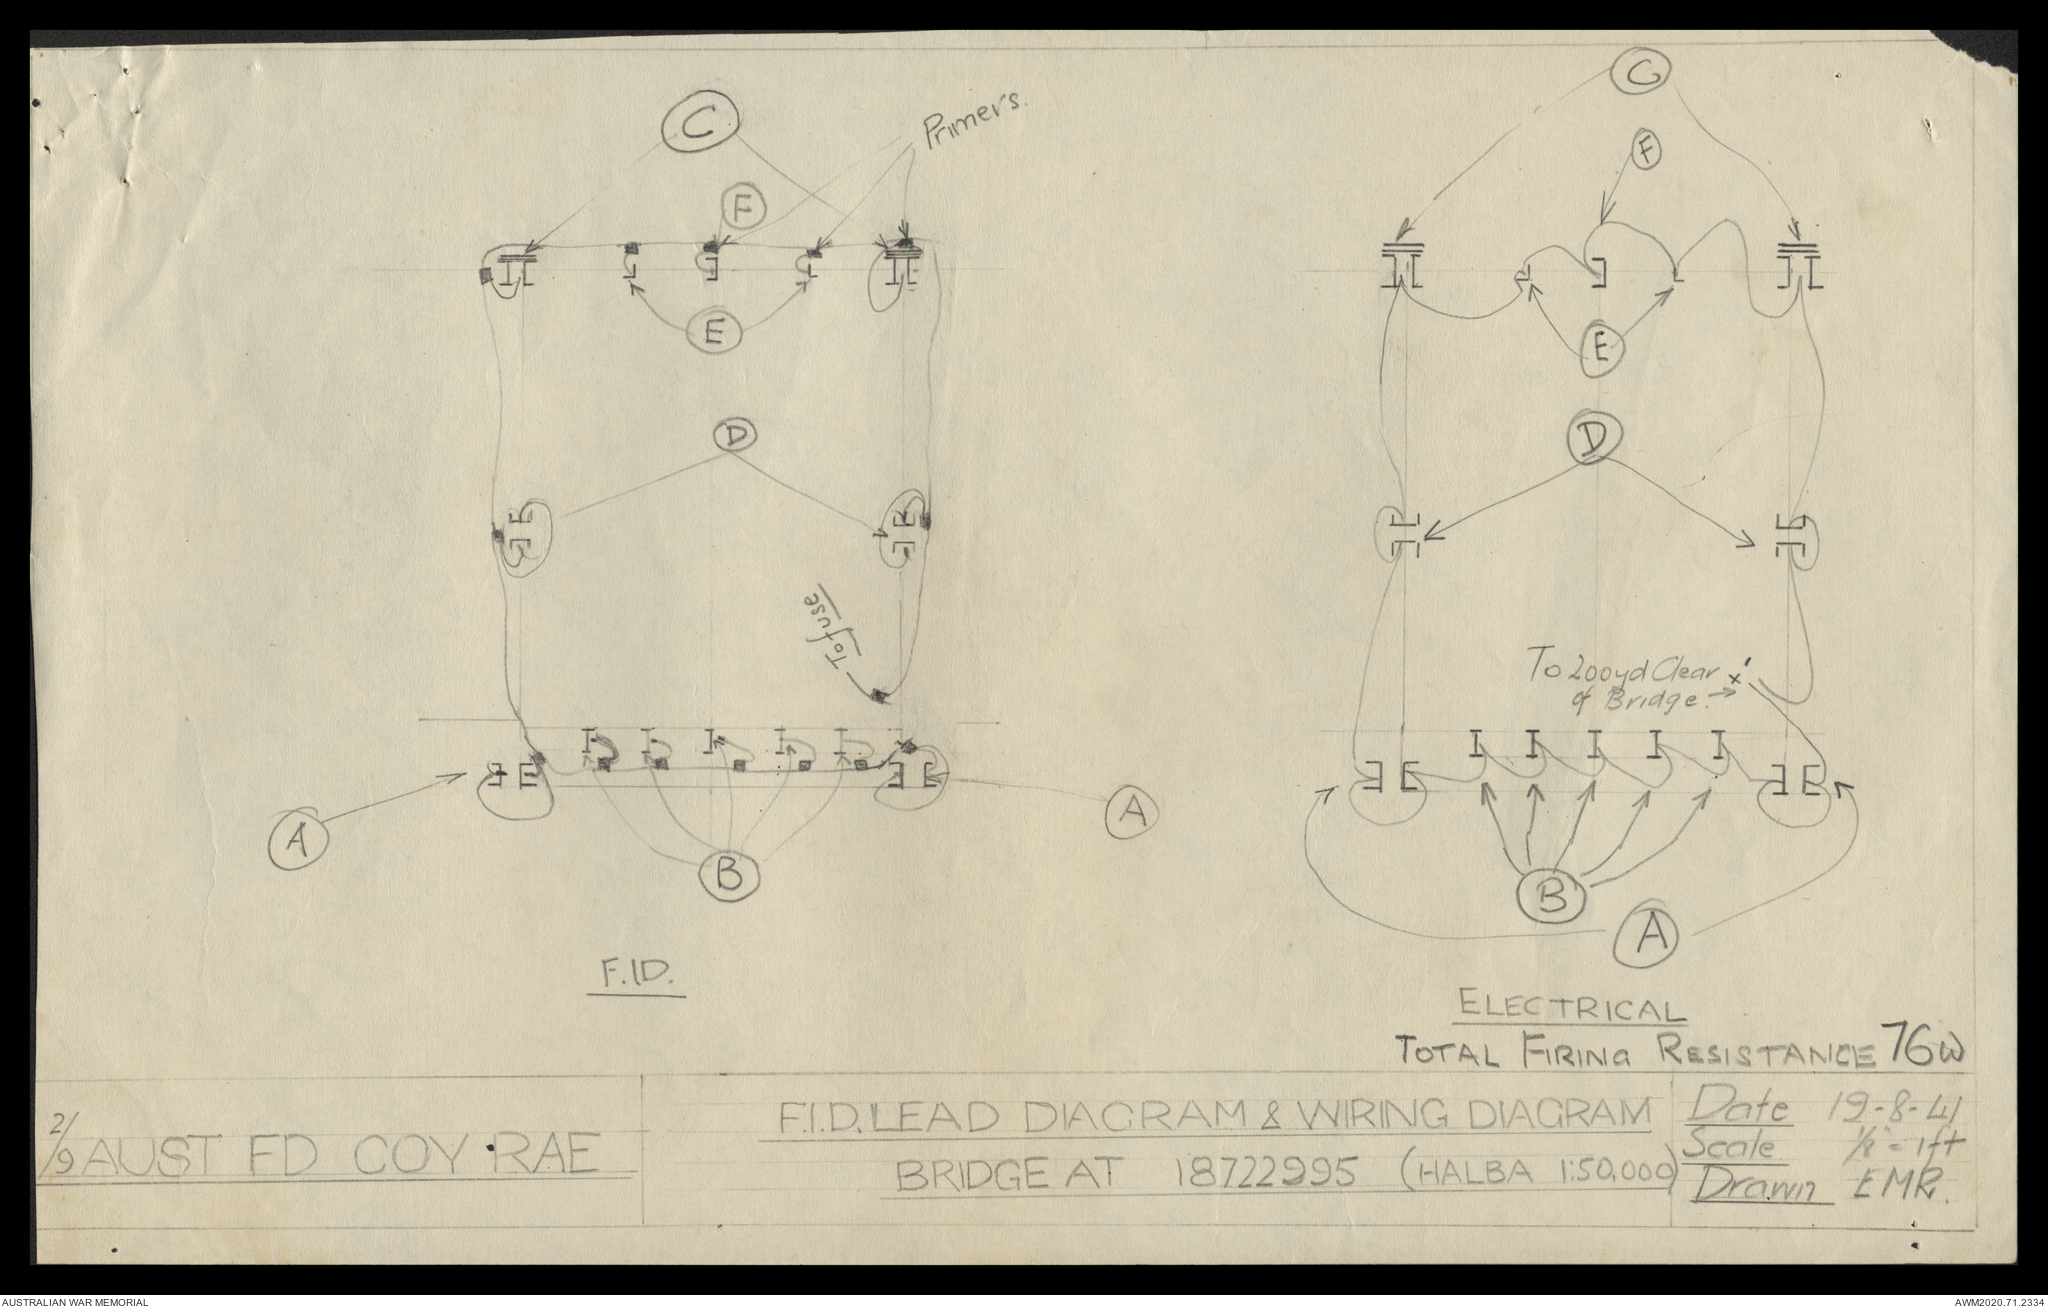 C
Primers.
F
E
D
To fuse
A
B
A
F.I.D.
C
F
E
D
To 200yd Clear
of Bridge.
B
A
ELECTRICAL
TOTAL FIRING RESISTANCE 76ω
2/9 AUST FD COY RAE
F.I.D. LEAD DIAGRAM & WIRING DIAGRAM
BRIDGE AT 18722995 (HALBA 1:50,000)
Date 19-8-41
Scale 1/8" = 1ft
Drawn EMR.
AUSTRALIAN WAR MEMORIAL
AWM2020.71.2334